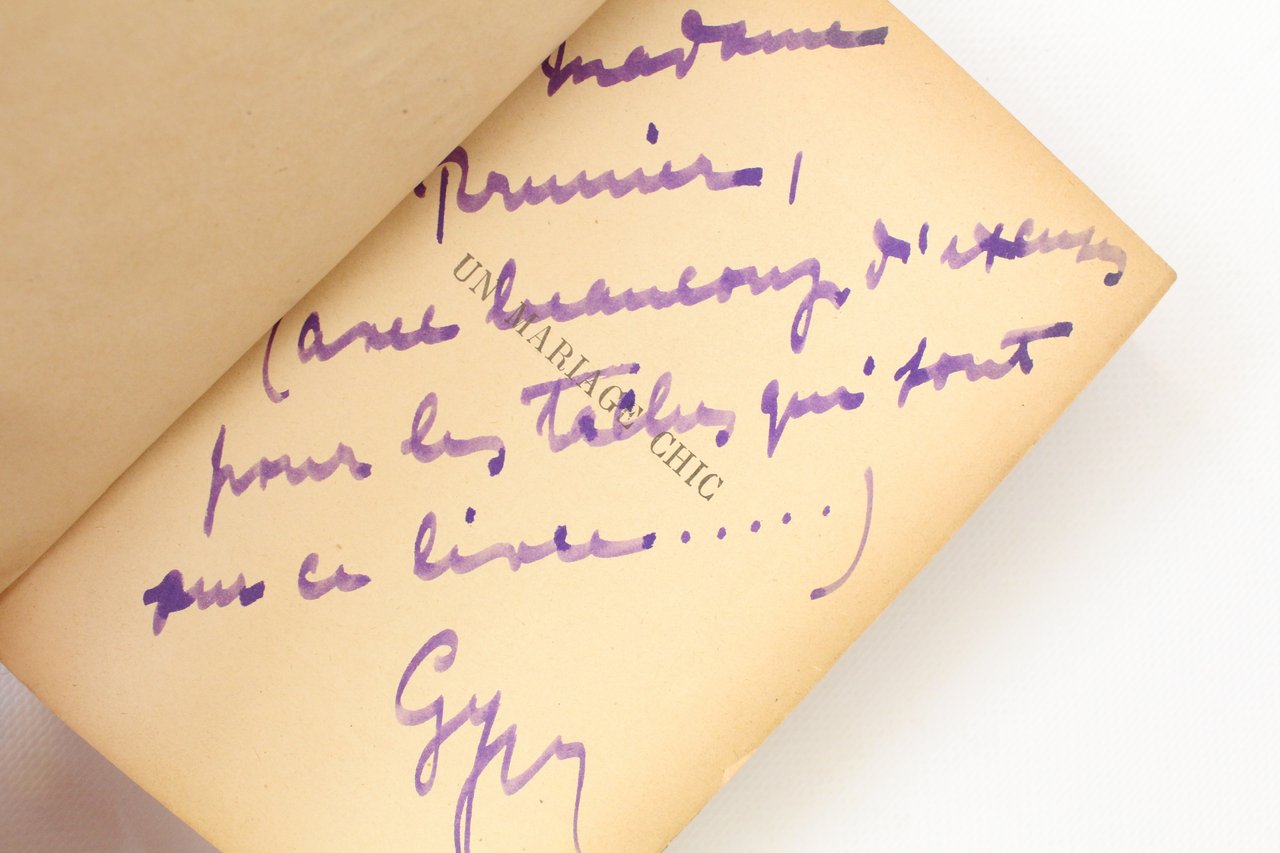 madame
Prunier,
UN MARIAGE CHIC
(avec beaucoup d'excuses
pour les taches qui sont
sur ce livre.....)
Gyp